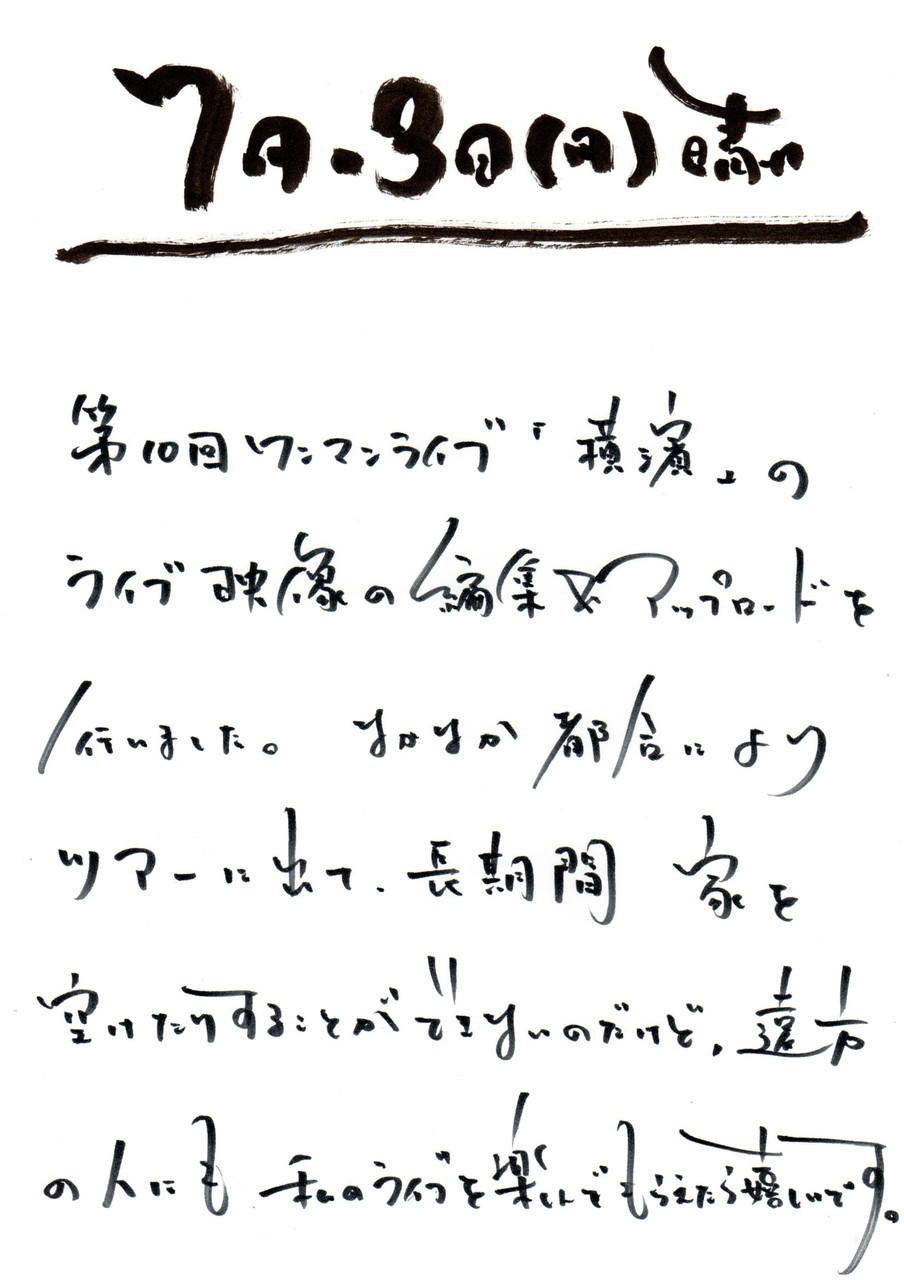 7月・3日(月)晴れ
第10回ワンマンライブ「横濱」の
ライブ映像の編集&アップロードを
行いました。 なかなか都合により
ツアーに出て、長期間 家を
空けたりすることができないのだけど、遠方
の人にも 私のライブを楽しんでもらえたら嬉しいです。